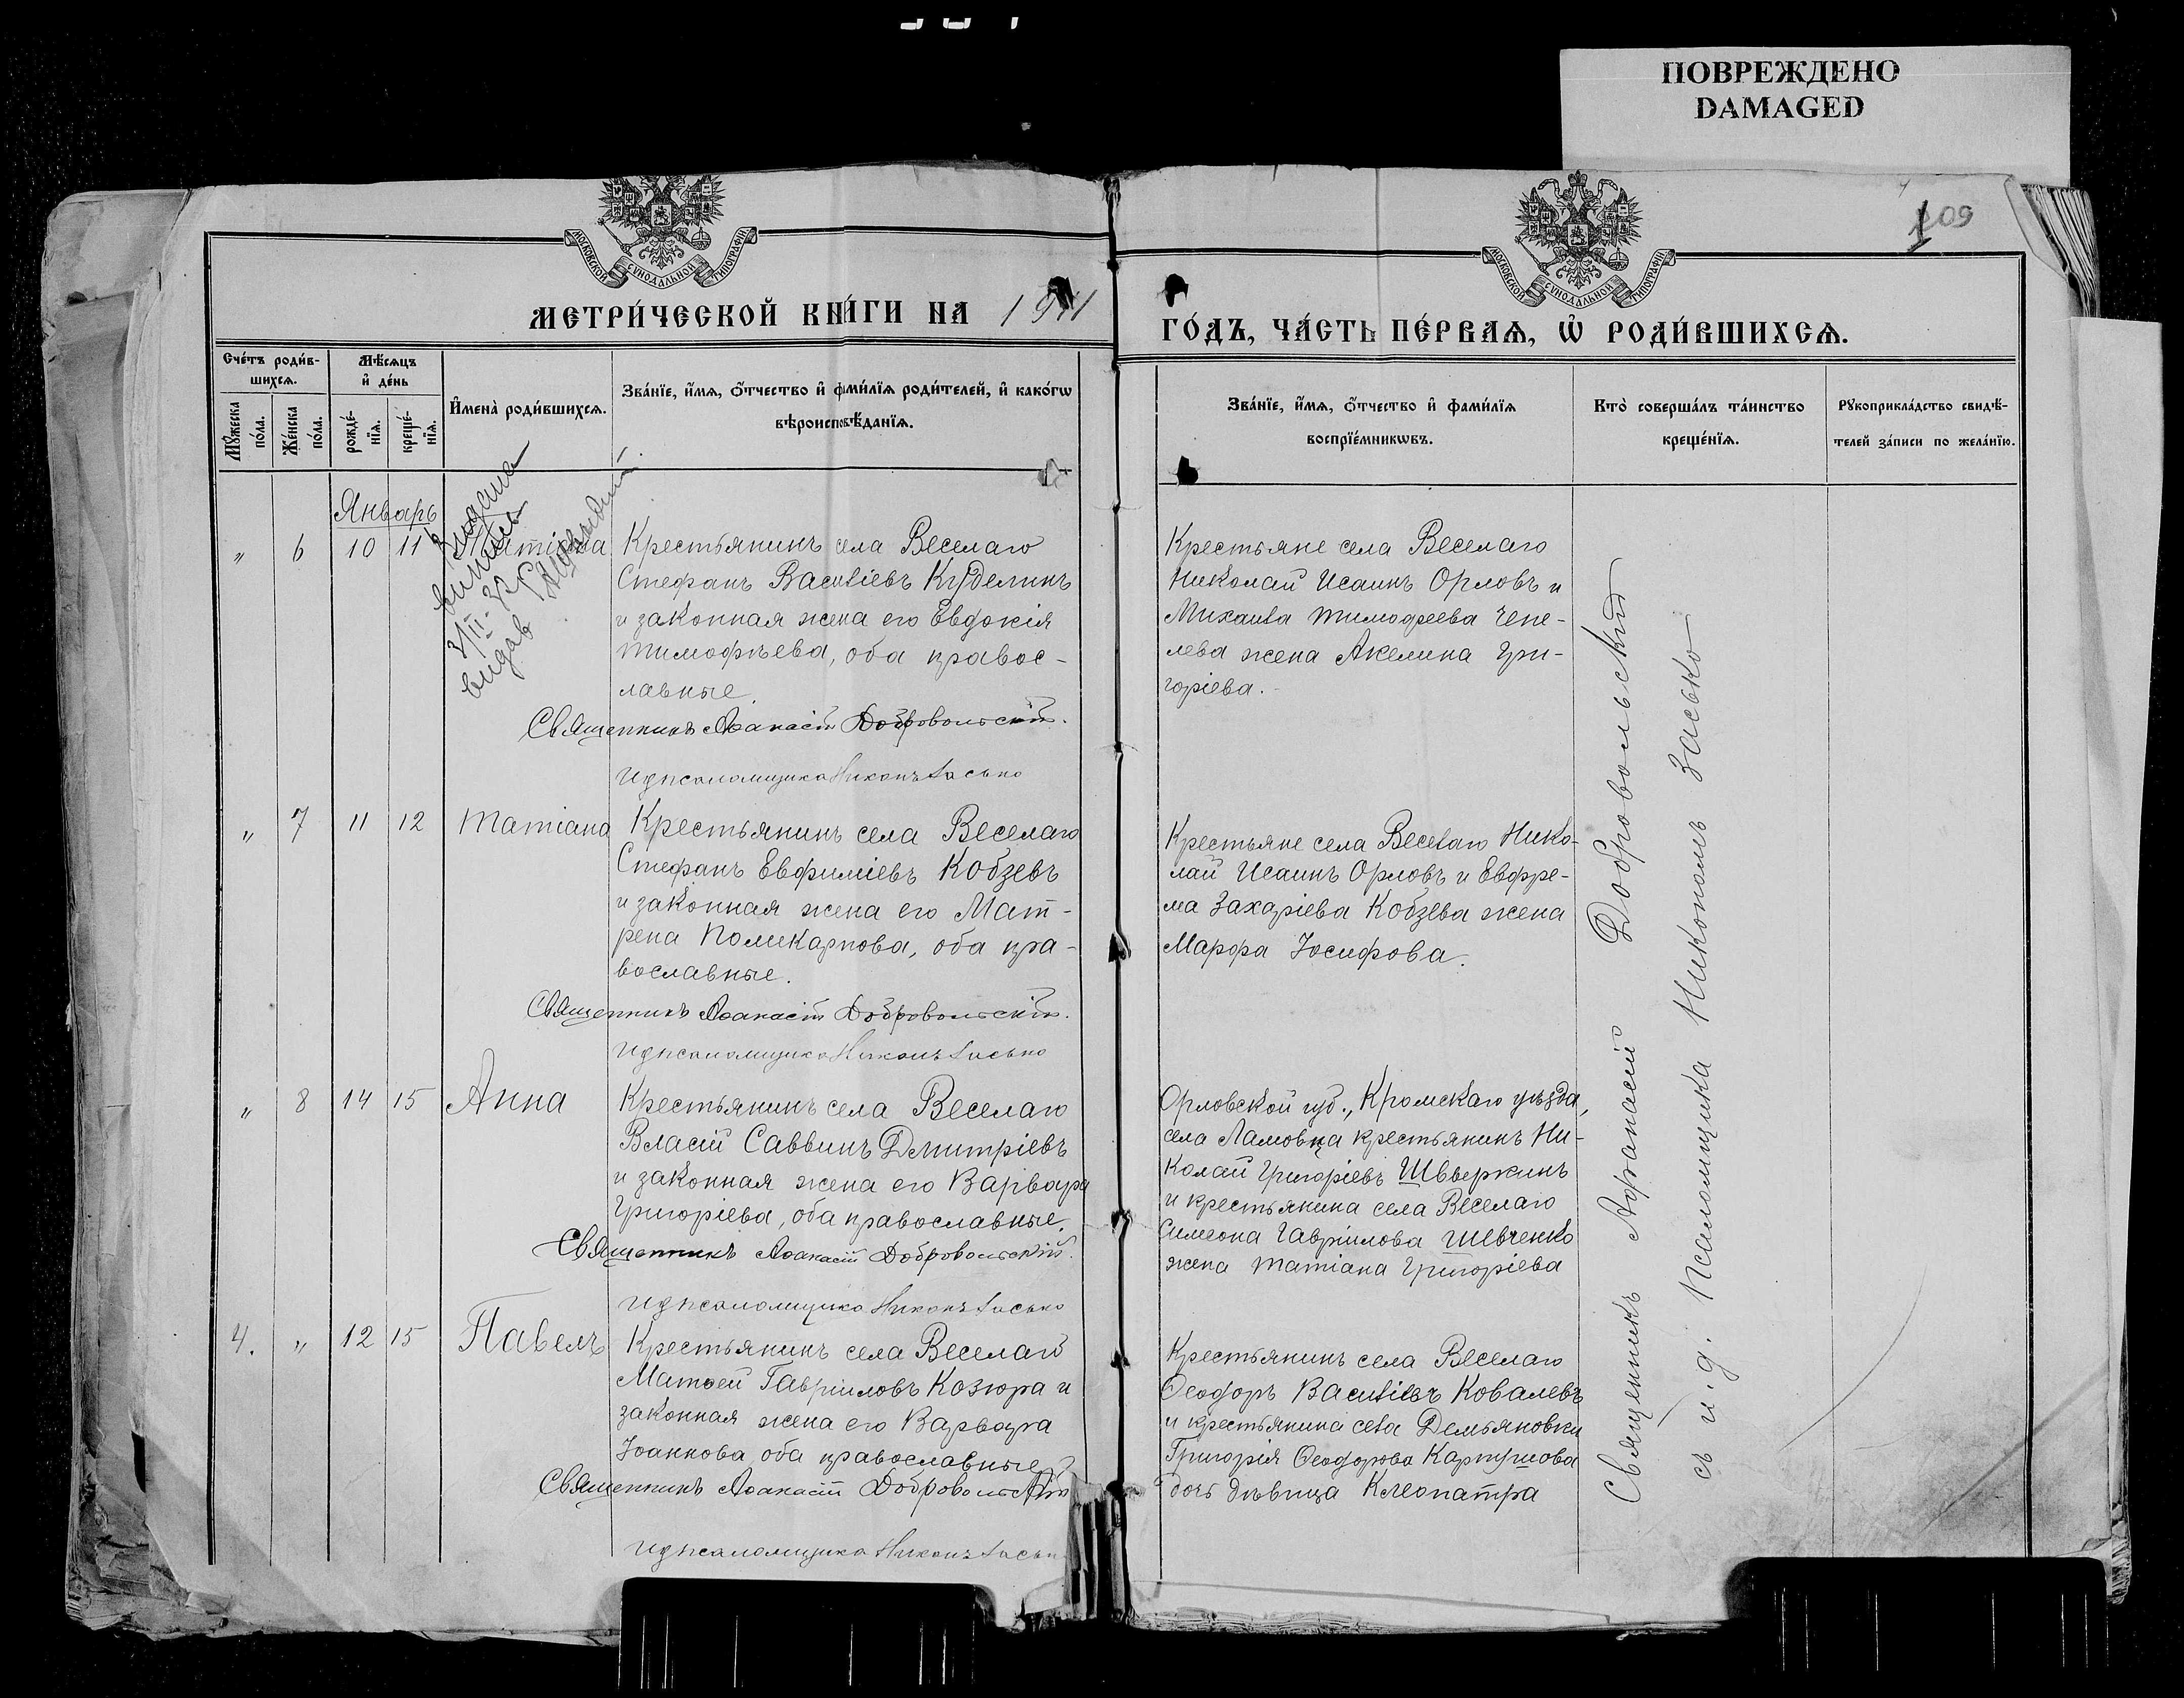 ПОВРЕЖДЕНО
DAMAGED
109
МОСКОВСКОЙ СѴНОДАЛЬНОЙ ТИПОГРАФІИ
МОСКОВСКОЙ СѴНОДАЛЬНОЙ ТИПОГРАФІИ
МЕТРИ́ЧЕСКОЙ КНИ́ГИ НА 1911
ГО́ДЪ, ЧА́СТЬ ПЕ́РВАЯ, Ѡ҆ РОДИ́ВШИХСЯ.
Сче́тъ роди́в-
шихся.
Мѣ́сяцъ
и҆ де́нь
Мꙋ́жеска
по́ла.
Же́нска
по́ла.
рожде́-
нїя.
креще́-
нїя.
И҆мена̀ роди́вшихся.
Зва́нїе, и҆́мя, о҆́тчество и҆ фами́лїя роди́телей, и҆ како́гѡ
вѣроисповѣ́данїя.
Зва́нїе, и҆́мя, о҆́тчество и҆ фами́лїя
воспрїе́мникѡвъ.
Кто̀ соверша́лъ та́инство
креще́нїя.
Рꙋкоприкла́дство свидѣ́-
телей за́писи по жела́нїю.
Январь
" 6 10 11 Татіана
видав
Крестьянинъ села Веселаго
Стефанъ Василіевъ Куделинъ
и законная жена его Евдокія
Тимофѣева, оба правос-
лавные.
Священникъ Аѳанасій Добровольскій.
и д псаломщика Никонъ Засько
Крестьяне села Веселаго
Николай Исаинъ Орловъ и
Михаила Тимофеева Чепе-
лева жена Акелина Гри-
горіева.-
" 7 11 12 Татіана
Крестьянинъ села Веселаго
Стефанъ Евфиміевъ Кобзевъ
и законная жена его Мат-
рена Поликарпова, оба пра-
вославные.
Священникъ Аѳанасій Добровольскій.
и д псаломщика Никонъ Засько
Крестьяне села Веселаго Нико-
лай Исаинъ Орловъ и Евфре-
ма Захаріева Кобзева жена
Марфа Іосифова.
" 8 14 15 Анна
Крестьянинъ села Веселаго
Власій Саввинъ Дмитріевъ
и законная жена его Варвара
Григоріева, оба православные.
Священникъ Аѳанасій Добровольскій.
и д псаломщика Никонъ Засько
Орловской губ., Кромскаго уѣзда,
села Ламовца крестьянинъ Ни-
колай Григоріевъ Швверкинъ
и крестьянина села Веселаго
Симеона Гавріилова Шевченко
жена Татіана Григоріева
4. " 12 15 Павелъ
Крестьянинъ села Веселаго
Матѳей Гавріиловъ Козюра и
законная жена его Варвара
Іоаннова, оба православные
Священникъ Аѳанасій Добровольскій
и д псаломщика Никонъ Засько
Крестьянинъ села Веселаго
Ѳеодоръ Василіевъ Ковалевъ
и крестьянина села Демьяновки
Григорія Ѳеодорова Картушова
дочь дѣвица Клеопатра
Священникъ Афанасій Добровольскій
съ и.д. Псаломщика Никономъ Засько